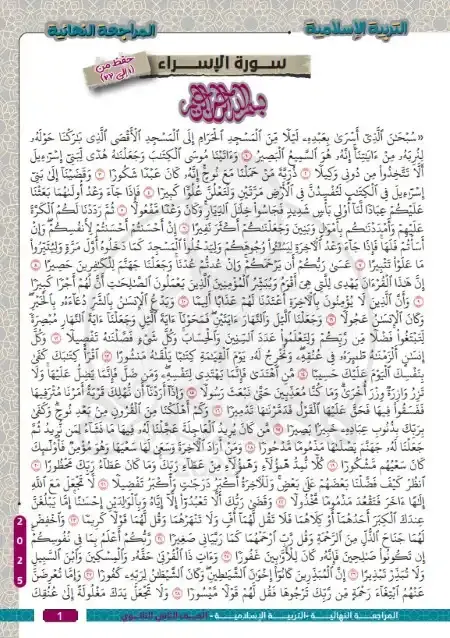 التربية الإسلامية
المراجعة النهائية
حفظ من
(١ إلى ٢٢)
سورة الإسراء
بسم الله الرحمن الرحيم
«سُبْحَٰنَ ٱلَّذِىٓ أَسْرَىٰ بِعَبْدِهِۦ لَيْلًا مِّنَ ٱلْمَسْجِدِ ٱلْحَرَامِ إِلَى ٱلْمَسْجِدِ ٱلْأَقْصَى ٱلَّذِى بَٰرَكْنَا حَوْلَهُۥ
لِنُرِيَهُۥ مِنْ ءَايَٰتِنَآ إِنَّهُۥ هُوَ ٱلسَّمِيعُ ٱلْبَصِيرُ ١ وَءَاتَيْنَا مُوسَى ٱلْكِتَٰبَ وَجَعَلْنَٰهُ هُدًى لِّبَنِىٓ إِسْرَٰٓءِيلَ
أَلَّا تَتَّخِذُوا۟ مِن دُونِى وَكِيلًا ٢ ذُرِّيَّةَ مَنْ حَمَلْنَا مَعَ نُوحٍ إِنَّهُۥ كَانَ عَبْدًا شَكُورًا ٣ وَقَضَيْنَآ إِلَىٰ بَنِىٓ
إِسْرَٰٓءِيلَ فِى ٱلْكِتَٰبِ لَتُفْسِدُنَّ فِى ٱلْأَرْضِ مَرَّتَيْنِ وَلَتَعْلُنَّ عُلُوًّا كَبِيرًا ٤ فَإِذَا جَآءَ وَعْدُ أُولَىٰهُمَا بَعَثْنَا
عَلَيْكُمْ عِبَادًا لَّنَآ أُو۟لِى بَأْسٍ شَدِيدٍ فَجَاسُوا۟ خِلَٰلَ ٱلدِّيَارِ وَكَانَ وَعْدًا مَّفْعُولًا ٥ ثُمَّ رَدَدْنَا لَكُمُ ٱلْكَرَّةَ
عَلَيْهِمْ وَأَمْدَدْنَٰكُم بِأَمْوَٰلٍ وَبَنِينَ وَجَعَلْنَٰكُمْ أَكْثَرَ نَفِيرًا ٦ إِنْ أَحْسَنتُمْ أَحْسَنتُمْ لِأَنفُسِكُمْ وَإِنْ
أَسَأْتُمْ فَلَهَا فَإِذَا جَآءَ وَعْدُ ٱلْأَخِرَةِ لِيَسُۥٓـُٔوا۟ وُجُوهَكُمْ وَلِيَدْخُلُوا۟ ٱلْمَسْجِدَ كَمَا دَخَلُوهُ أَوَّلَ مَرَّةٍ وَلِيُتَبِّرُوا۟
مَا عَلَوْا۟ تَتْبِيرًا ٧ عَسَىٰ رَبُّكُمْ أَن يَرْحَمَكُمْ وَإِنْ عُدتُّمْ عُدْنَا وَجَعَلْنَا جَهَنَّمَ لِلْكَٰفِرِينَ حَصِيرًا ٨
إِنَّ هَٰذَا ٱلْقُرْءَانَ يَهْدِى لِلَّتِى هِىَ أَقْوَمُ وَيُبَشِّرُ ٱلْمُؤْمِنِينَ ٱلَّذِينَ يَعْمَلُونَ ٱلصَّٰلِحَٰتِ أَنَّ لَهُمْ أَجْرًا كَبِيرًا
٩ وَأَنَّ ٱلَّذِينَ لَا يُؤْمِنُونَ بِٱلْأَخِرَةِ أَعْتَدْنَا لَهُمْ عَذَابًا أَلِيمًا ١٠ وَيَدْعُ ٱلْإِنسَٰنُ بِٱلشَّرِّ دُعَآءَهُۥ بِٱلْخَيْرِ
وَكَانَ ٱلْإِنسَٰنُ عَجُولًا ١١ وَجَعَلْنَا ٱلَّيْلَ وَٱلنَّهَارَ ءَايَتَيْنِ فَمَحَوْنَآ ءَايَةَ ٱلَّيْلِ وَجَعَلْنَآ ءَايَةَ ٱلنَّهَارِ مُبْصِرَةً
لِّتَبْتَغُوا۟ فَضْلًا مِّن رَّبِّكُمْ وَلِتَعْلَمُوا۟ عَدَدَ ٱلسِّنِينَ وَٱلْحِسَابَ وَكُلَّ شَىْءٍ فَصَّلْنَٰهُ تَفْصِيلًا ١٢ وَكُلَّ
إِنسَٰنٍ أَلْزَمْنَٰهُ طَٰٓئِرَهُۥ فِى عُنُقِهِۦ وَنُخْرِجُ لَهُۥ يَوْمَ ٱلْقِيَٰمَةِ كِتَٰبًا يَلْقَىٰهُ مَنشُورًا ١٣ ٱقْرَأْ كِتَٰبَكَ كَفَىٰ
بِنَفْسِكَ ٱلْيَوْمَ عَلَيْكَ حَسِيبًا ١٤ مَّنِ ٱهْتَدَىٰ فَإِنَّمَا يَهْتَدِى لِنَفْسِهِۦ وَمَن ضَلَّ فَإِنَّمَا يَضِلُّ عَلَيْهَا وَلَا
تَزِرُ وَازِرَةٌ وِزْرَ أُخْرَىٰ وَمَا كُنَّا مُعَذِّبِينَ حَتَّىٰ نَبْعَثَ رَسُولًا ١٥ وَإِذَآ أَرَدْنَآ أَن نُّهْلِكَ قَرْيَةً أَمَرْنَا مُتْرَفِيهَا
فَفَسَقُوا۟ فِيهَا فَحَقَّ عَلَيْهَا ٱلْقَوْلُ فَدَمَّرْنَٰهَا تَدْمِيرًا ١٦ وَكَمْ أَهْلَكْنَا مِنَ ٱلْقُرُونِ مِنۢ بَعْدِ نُوحٍ وَكَفَىٰ
بِرَبِّكَ بِذُنُوبِ عِبَادِهِۦ خَبِيرًۢا بَصِيرًا ١٧ مَّن كَانَ يُرِيدُ ٱلْعَاجِلَةَ عَجَّلْنَا لَهُۥ فِيهَا مَا نَشَآءُ لِمَن نُّرِيدُ ثُمَّ
جَعَلْنَا لَهُۥ جَهَنَّمَ يَصْلَىٰهَا مَذْمُومًا مَّدْحُورًا ١٨ وَمَنْ أَرَادَ ٱلْأَخِرَةَ وَسَعَىٰ لَهَا سَعْيَهَا وَهُوَ مُؤْمِنٌ فَأُو۟لَٰٓئِكَ
كَانَ سَعْيُهُم مَّشْكُورًا ١٩ كُلًّا نُّمِدُّ هَٰٓؤُلَآءِ وَهَٰٓؤُلَآءِ مِنْ عَطَآءِ رَبِّكَ وَمَا كَانَ عَطَآءُ رَبِّكَ مَحْظُورًا ٢٠
ٱنظُرْ كَيْفَ فَضَّلْنَا بَعْضَهُمْ عَلَىٰ بَعْضٍ وَلَلْأَخِرَةُ أَكْبَرُ دَرَجَٰتٍ وَأَكْبَرُ تَفْضِيلًا ٢١ لَّا تَجْعَلْ مَعَ ٱللَّهِ
إِلَٰهًا ءَاخَرَ فَتَقْعُدَ مَذْمُومًا مَّخْذُولًا ٢٢ وَقَضَىٰ رَبُّكَ أَلَّا تَعْبُدُوٓا۟ إِلَّآ إِيَّاهُ وَبِٱلْوَٰلِدَيْنِ إِحْسَٰنًا إِمَّا يَبْلُغَنَّ
عِندَكَ ٱلْكِبَرَ أَحَدُهُمَآ أَوْ كِلَاهُمَا فَلَا تَقُل لَّهُمَآ أُفٍّ وَلَا تَنْهَرْهُمَا وَقُل لَّهُمَا قَوْلًا كَرِيمًا ٢٣ وَٱخْفِضْ
لَهُمَا جَنَاحَ ٱلذُّلِّ مِنَ ٱلرَّحْمَةِ وَقُل رَّبِّ ٱرْحَمْهُمَا كَمَا رَبَّيَانِى صَغِيرًا ٢٤ رَّبُّكُمْ أَعْلَمُ بِمَا فِى نُفُوسِكُمْ
إِن تَكُونُوا۟ صَٰلِحِينَ فَإِنَّهُۥ كَانَ لِلْأَوَّٰبِينَ غَفُورًا ٢٥ وَءَاتِ ذَا ٱلْقُرْبَىٰ حَقَّهُۥ وَٱلْمِسْكِينَ وَٱبْنَ ٱلسَّبِيلِ
وَلَا تُبَذِّرْ تَبْذِيرًا ٢٦ إِنَّ ٱلْمُبَذِّرِينَ كَانُوٓا۟ إِخْوَٰنَ ٱلشَّيَٰطِينِ وَكَانَ ٱلشَّيْطَٰنُ لِرَبِّهِۦ كَفُورًا ٢٧ وَإِمَّا تُعْرِضَنَّ
عَنْهُمُ ٱبْتِغَآءَ رَحْمَةٍ مِّن رَّبِّكَ تَرْجُوهَا فَقُل لَّهُمْ قَوْلًا مَّيْسُورًا ٢٨ وَلَا تَجْعَلْ يَدَكَ مَغْلُولَةً إِلَىٰ عُنُقِكَ
2025
المراجعة النهائية - التربية الإسلامية - الصف الثاني الثانوي
1